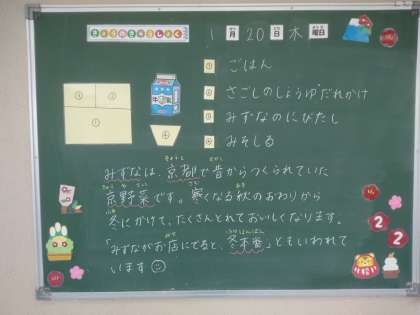 きょうのきゅうしょく
1月20日 木曜日
① ごはん
② さごしのしょうゆだれかけ
③ みずなのにびたし
④ みそしる
② ③
①
牛乳
④
みずなは、京都で昔からつくられていた
京野菜です。寒くなる秋のおわりから
冬にかけて、たくさんとれておいしくなります。
「みずながお店にでると、冬本番」ともいわれて
います
2
2